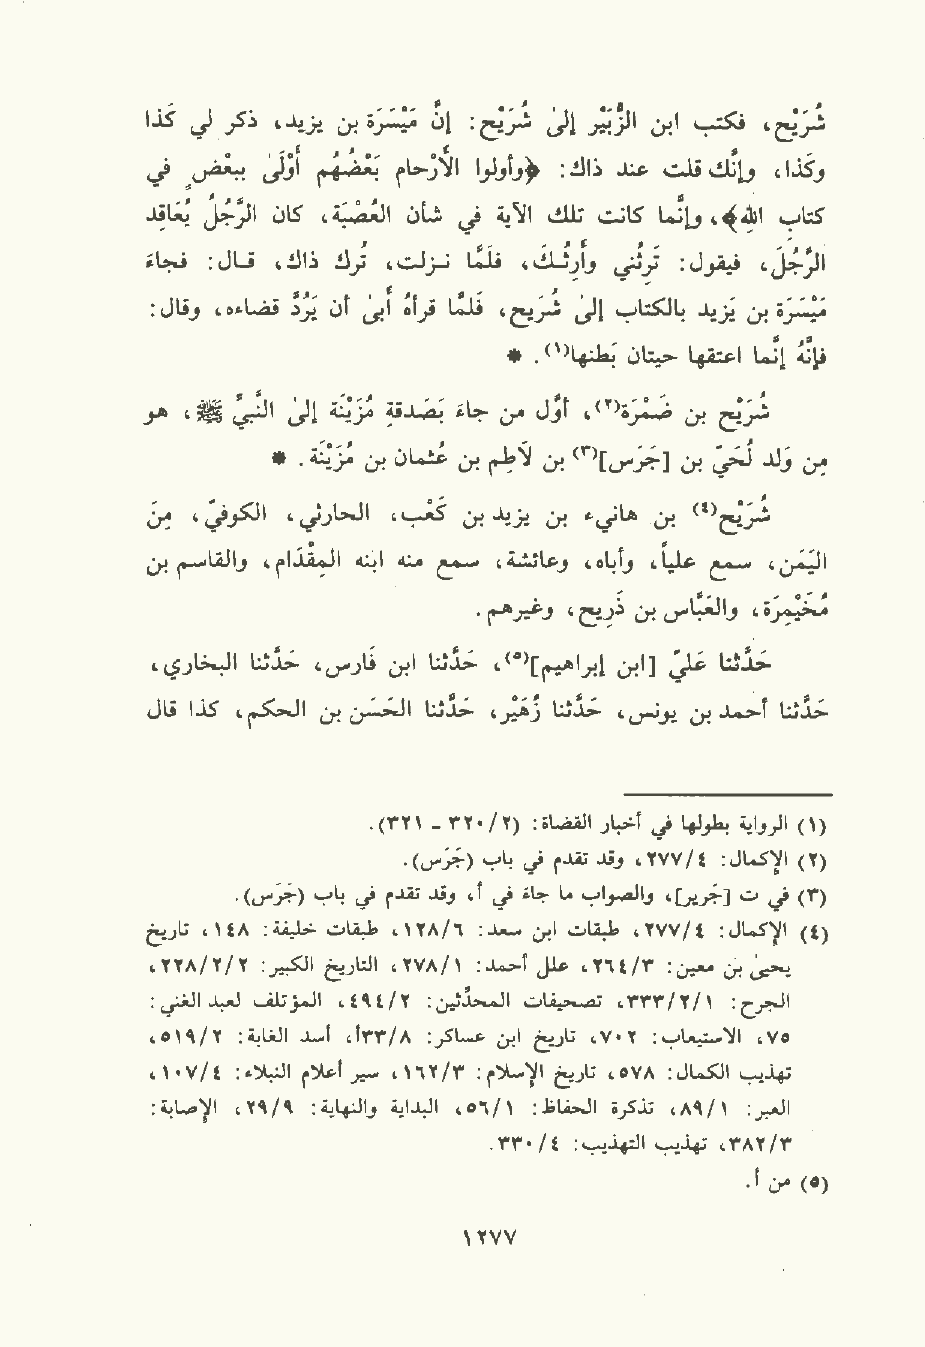 شُرَيْح، فكتب ابن الزُّبَيْر إلىٰ شُرَيْح: إنّ مَيْسَرَة بن يزيد، ذكر لي كَذا
وكَذا، وإنَّك قلت عند ذلك: ﴿وأولوا الأَرْحام بَعْضُهُم أَوْلَىٰ ببَعْضٍ في
كتاب الله﴾، وإنَّما كانت تلك الآية في شأن العُصْبَة، كان الرَّجُل يُعَاقِد
الرَّجُل، فيقول: تَرِثُني وأَرِثُـكَ، فلَمَّا نزلـت، تُرِك ذلك، قـال: فجاءَ
مَيْسَرَة بن يَزيد بالكتاب إلىٰ شُرَيْح، فَلَمَّا قرأهُ أَبىٰ أن يَرُدَّ قضاءه، وقال:
فإنَّهُ إنَّما اعتقها حيتان بَطنها(١). *
شُرَيْح بن ضَمْرَة(٢)، أوّل من جاءَ بَصَدقةِ مُزَيْنَة إلىٰ النَّبيِّ ﷺ، هو
من وَلد لُحَيّ بن [جَرَس](٣) بن لاَطِم بن عُثمان بن مُزَيْنَة. *
شُرَيْح(٤) بن هانيء بن يزيد بن كَعْب، الحارثي، الكوفيّ، مِنَ
اليَمَن، سمع علياً، وأباه، وعائشة، سمع منه ابنه المِقْدَام، والقاسم بن
مُخَيْمِرَة، والعَبَّاس بن ذَريح، وغيرهم.
حَدَّثنا عَليّ [ابن إبراهيم](٥)، حَدَّثنا ابن فَارس، حَدَّثنا البخاري،
حَدّثنا أحمد بن يونس، حَدَّثنا زُهَيْر، حَدَّثنا الحَسَن بن الحكم، كذا قال
(١) الرواية بطولها في أخبار القضاة: (٢/ ٣٢٠ - ٣٢١).
(٢) الإكمال: ٢٧٧/٤، وقد تقدم في باب (جَرَس).
(٣) في ت [جَرير]، والصواب ما جاءَ في أ، وقد تقدم في باب (جَرَس).
(٤) الإكمال: ٢٧٧/٤، طبقات ابن سعد: ١٢٨/٦، طبقات خليفة: ١٤٨، تاريخ
يحيىٰ بن معين: ٢٦٤/٣، علل أحمد: ٢٧٨/١، التاريخ الكبير: ٢٢٨/٢/٢،
الجرح: ٣٣٣/٢/١، تصحيفات المحدّثين: ٤٩٤/٢، المؤتلف لعبد الغني:
٧٥، الاستيعاب: ٧٠٢، تاريخ ابن عساكر: ٣٣/٨أ، أسد الغابة: ٥١٩/٢،
تهذيب الكمال: ٥٧٨، تاريخ الإسلام: ١٦٢/٣، سير أعلام النبلاء: ١٠٧/٤،
العبر: ٨٩/١، تذكرة الحفاظ: ٥٦/١، البداية والنهاية: ٢٩/٩، الإصابة:
٣٨٢/٣، تهذيب التهذيب: ٤/ ٣٣٠.
(٥) من أ.
١٢٧٧